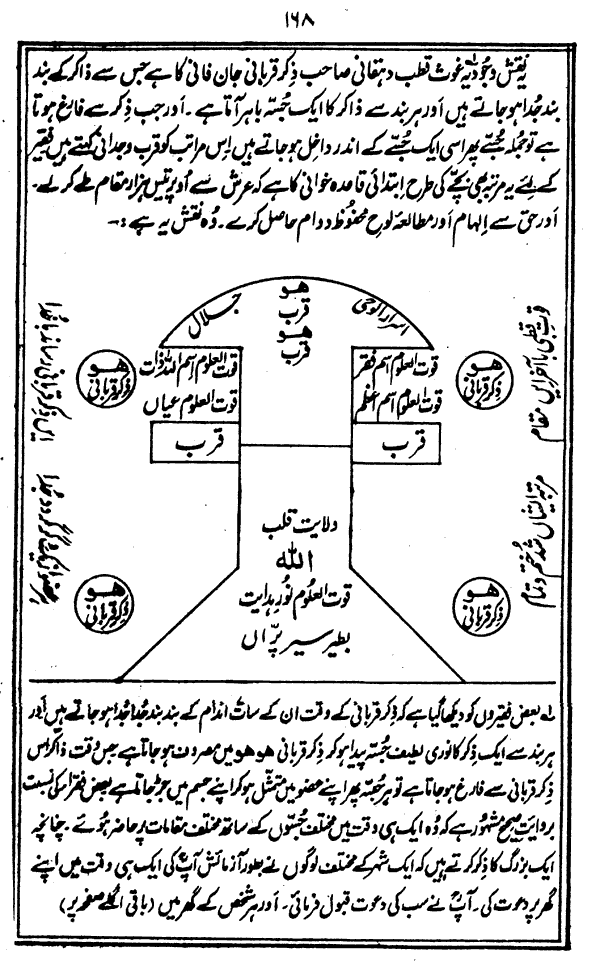 ۱۶۸
یہ نقش وجودیہ غوث قطب دہقانی صاحب ذکر قربانی جان فانی کا ہے جس سے ذاکر کے بند
بند جُدا ہو جاتے ہیں اَور ہر بند سے ذاکر کا ایک جُسّتہ باہر آتا ہے ۔ اَور جب ذکر سے فارغ ہوتا
ہے تو جُملہ جُسّے پھر اسی ایک جُسّے کے اندر داخل ہو جاتے ہیں اِس مراتب کو قرب وجدانی کہتے ہیں فقیر
کے لئے یہ مرتبہ بھی بچّے کی طرح ابتدائی قاعدہ خوانی کا ہے کہ عرش سے اُوپر تیس ہزار مقام طے کر لے ۔
اَور حق سے اِلہام اَور مطالعۂ لوح محفوظ دوام حاصل کرے ۔ وُہ نقش یہ ہے :۔
جلال
ھو
قرب
ھو
قرب
اسرار الوحی
قوت العلوم اِسم اللہ ذات
قوت العلوم عیاں
قوت العلوم اسم فقر
قوت العلوم اسم اعظم
قرب
قرب
ھو
ذکر قربانی
ھو
ذکر قربانی
ھو
ذکر قربانی
ھو
ذکر قربانی
ایں ذکر قربانی رساند با خُدا
قوتِ قطبی با آخر ایں مقام
مرتبہ ایشاں شد ختم و تمام
ولایت قلب
اللہ
قوت العلوم نُور ہدایت
بطیر سیر پرّاں
لہ بعض فقیروں کو دیکھا گیا ہے کہ ذکر قربانی کے وقت ان کے سات اندام کے بند بند جُدا جُدا ہو جاتے ہیں اَور
ہر بند سے ایک ذکر کا نوری لطیف جُسّتہ پیدا ہو کر ذکر قربانی ھو ھو میں مصروف ہو جاتا ہے جس وقت ذاکر اس
ذکر قربانی سے فارغ ہو جاتا ہے تو ہر جُسّہ پھر اپنے عضو میں متمثّل ہو کر اپنے جسم میں جڑ جاتا ہے بعض فقرا کی نسبت
بروایتِ صحیح مشہور ہے کہ وُہ ایک ہی وقت میں مختلف جُسّوں کے ساتھ مختلف مقامات پر حاضر ہُوئے ۔ چنانچہ
ایک بزرگ کا ذکر کرتے ہیں کہ ایک شہر کے مختلف لوگوں نے بطور آزمائش آپؒ کی ایک ہی وقت میں اپنے
گھر پر دعوت کی ۔ آپؒ نے سب کی دعوت قبول فرمائی ۔ اَور ہر شخص کے گھر میں (باقی اگلے صفحہ پر)